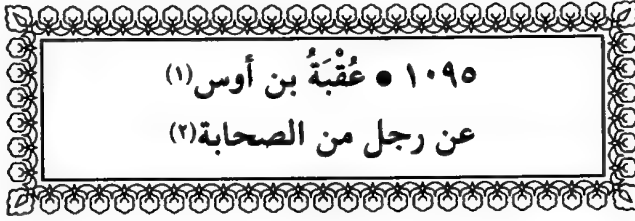 ١٠٩٥ • عُقْبَةُ بن أوس(١)
عن رجل من الصحابة(٢)